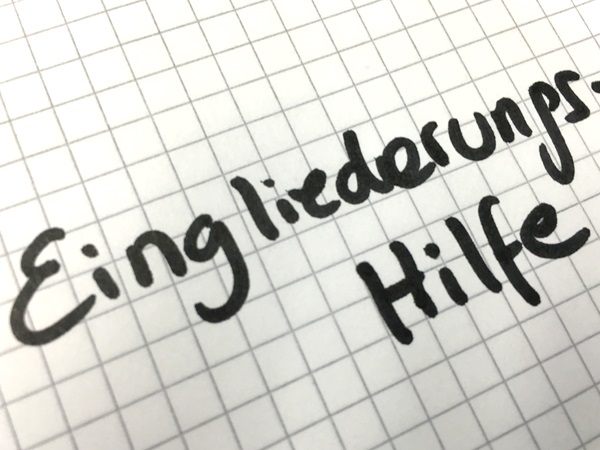 Eingliederungs-
Hilfe